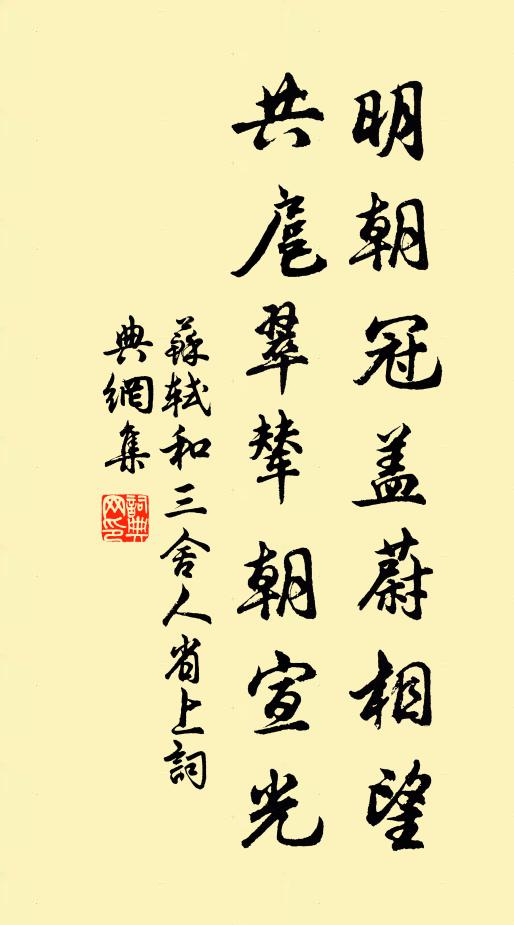 明朝冠盖蔚相望
共扈翠辇朝宣光
蘇軾和三舍人省上詞
典網集
詞典
网印